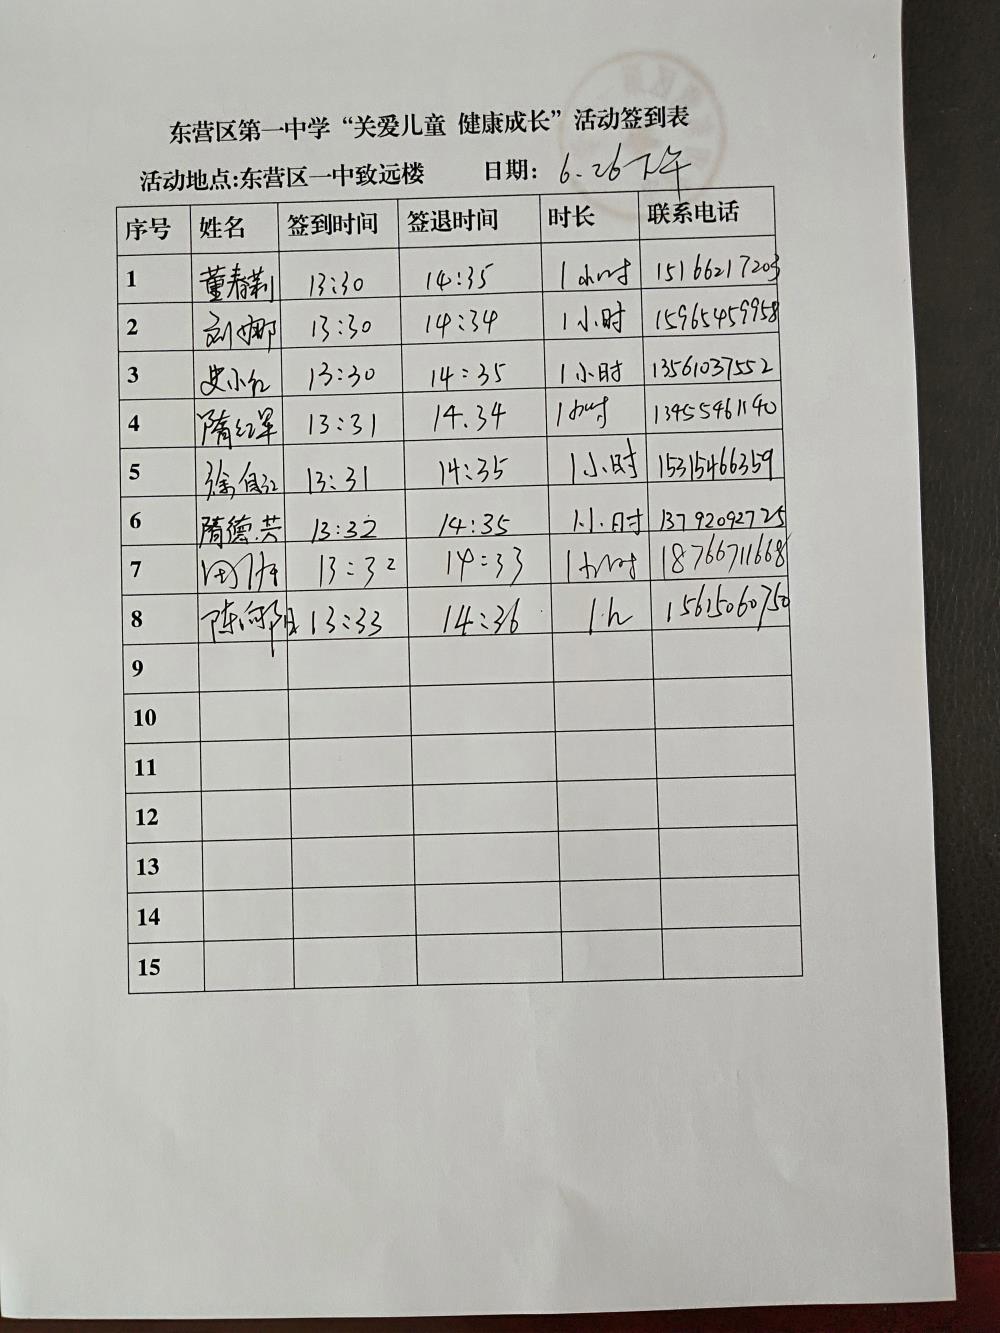 东营区第一中学“关爱儿童 健康成长”活动签到表
活动地点:东营区一中致远楼 日期: 6.26下午
序号 姓名 签到时间 签退时间 时长 联系电话
1 董春莉 13:30 14:35 1小时 15166217203
2 刘娜 13:30 14:34 1小时 15965459958
3 史小红 13:30 14:35 1小时 13561037552
4 隋红军 13:31 14.34 1小时 13455461140
5 13:31 14:35 1小时 15315466359
6 隋德芳 13:32 14:35 1小时 13792092725
7 13:32 14:33 1小时 18766711668
8 陈向阳 13:33 14:36 1.h 15615060750
9
10
11
12
13
14
15